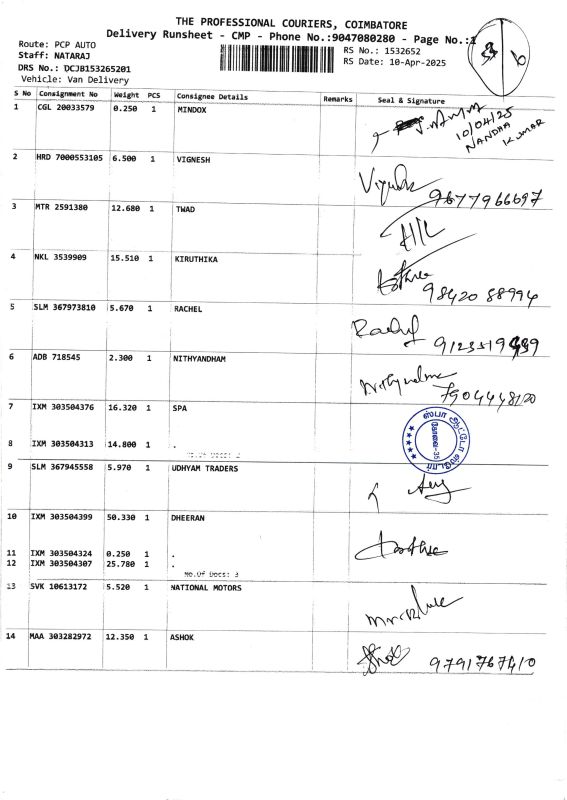 THE PROFESSIONAL COURIERS, COIMBATORE
Delivery Runsheet - CMP - Phone No.:9047080280 - Page No.:1
Route: PCP AUTO
Staff: NATARAJ
DRS No.: DCJB153265201
Vehicle: Van Delivery
RS No.: 1532652
RS Date: 10-Apr-2025
33
b
S No Consignment No Weight PCS Consignee Details Remarks Seal & Signature
1 CGL 20033579 0.250 1 MINDOX
10/04/25
NANDHA
KUMAR
2 HRD 7000553105 6.500 1 VIGNESH
9677966697
3 MTR 2591380 12.680 1 TWAD
4 NKL 3539909 15.510 1 KIRUTHIKA
9842088994
5 SLM 367973810 5.670 1 RACHEL
6 ADB 718545 2.300 1 NITHYANDHAM
7904448120
7 IXM 303504376 16.320 1 SPA
8 IXM 303504313 14.800 1 .
No.Of Docs: 2
ஸ்பா ஆட்டோ ஸ்டோர்
கோவை-35
9 SLM 367945558 5.970 1 UDHYAM TRADERS
10 IXM 303504399 50.330 1 DHEERAN
11 IXM 303504324 0.250 1 .
12 IXM 303504307 25.780 1 .
No.Of Docs: 3
13 SVK 10613172 5.520 1 NATIONAL MOTORS
14 MAA 303282972 12.350 1 ASHOK
9791767410